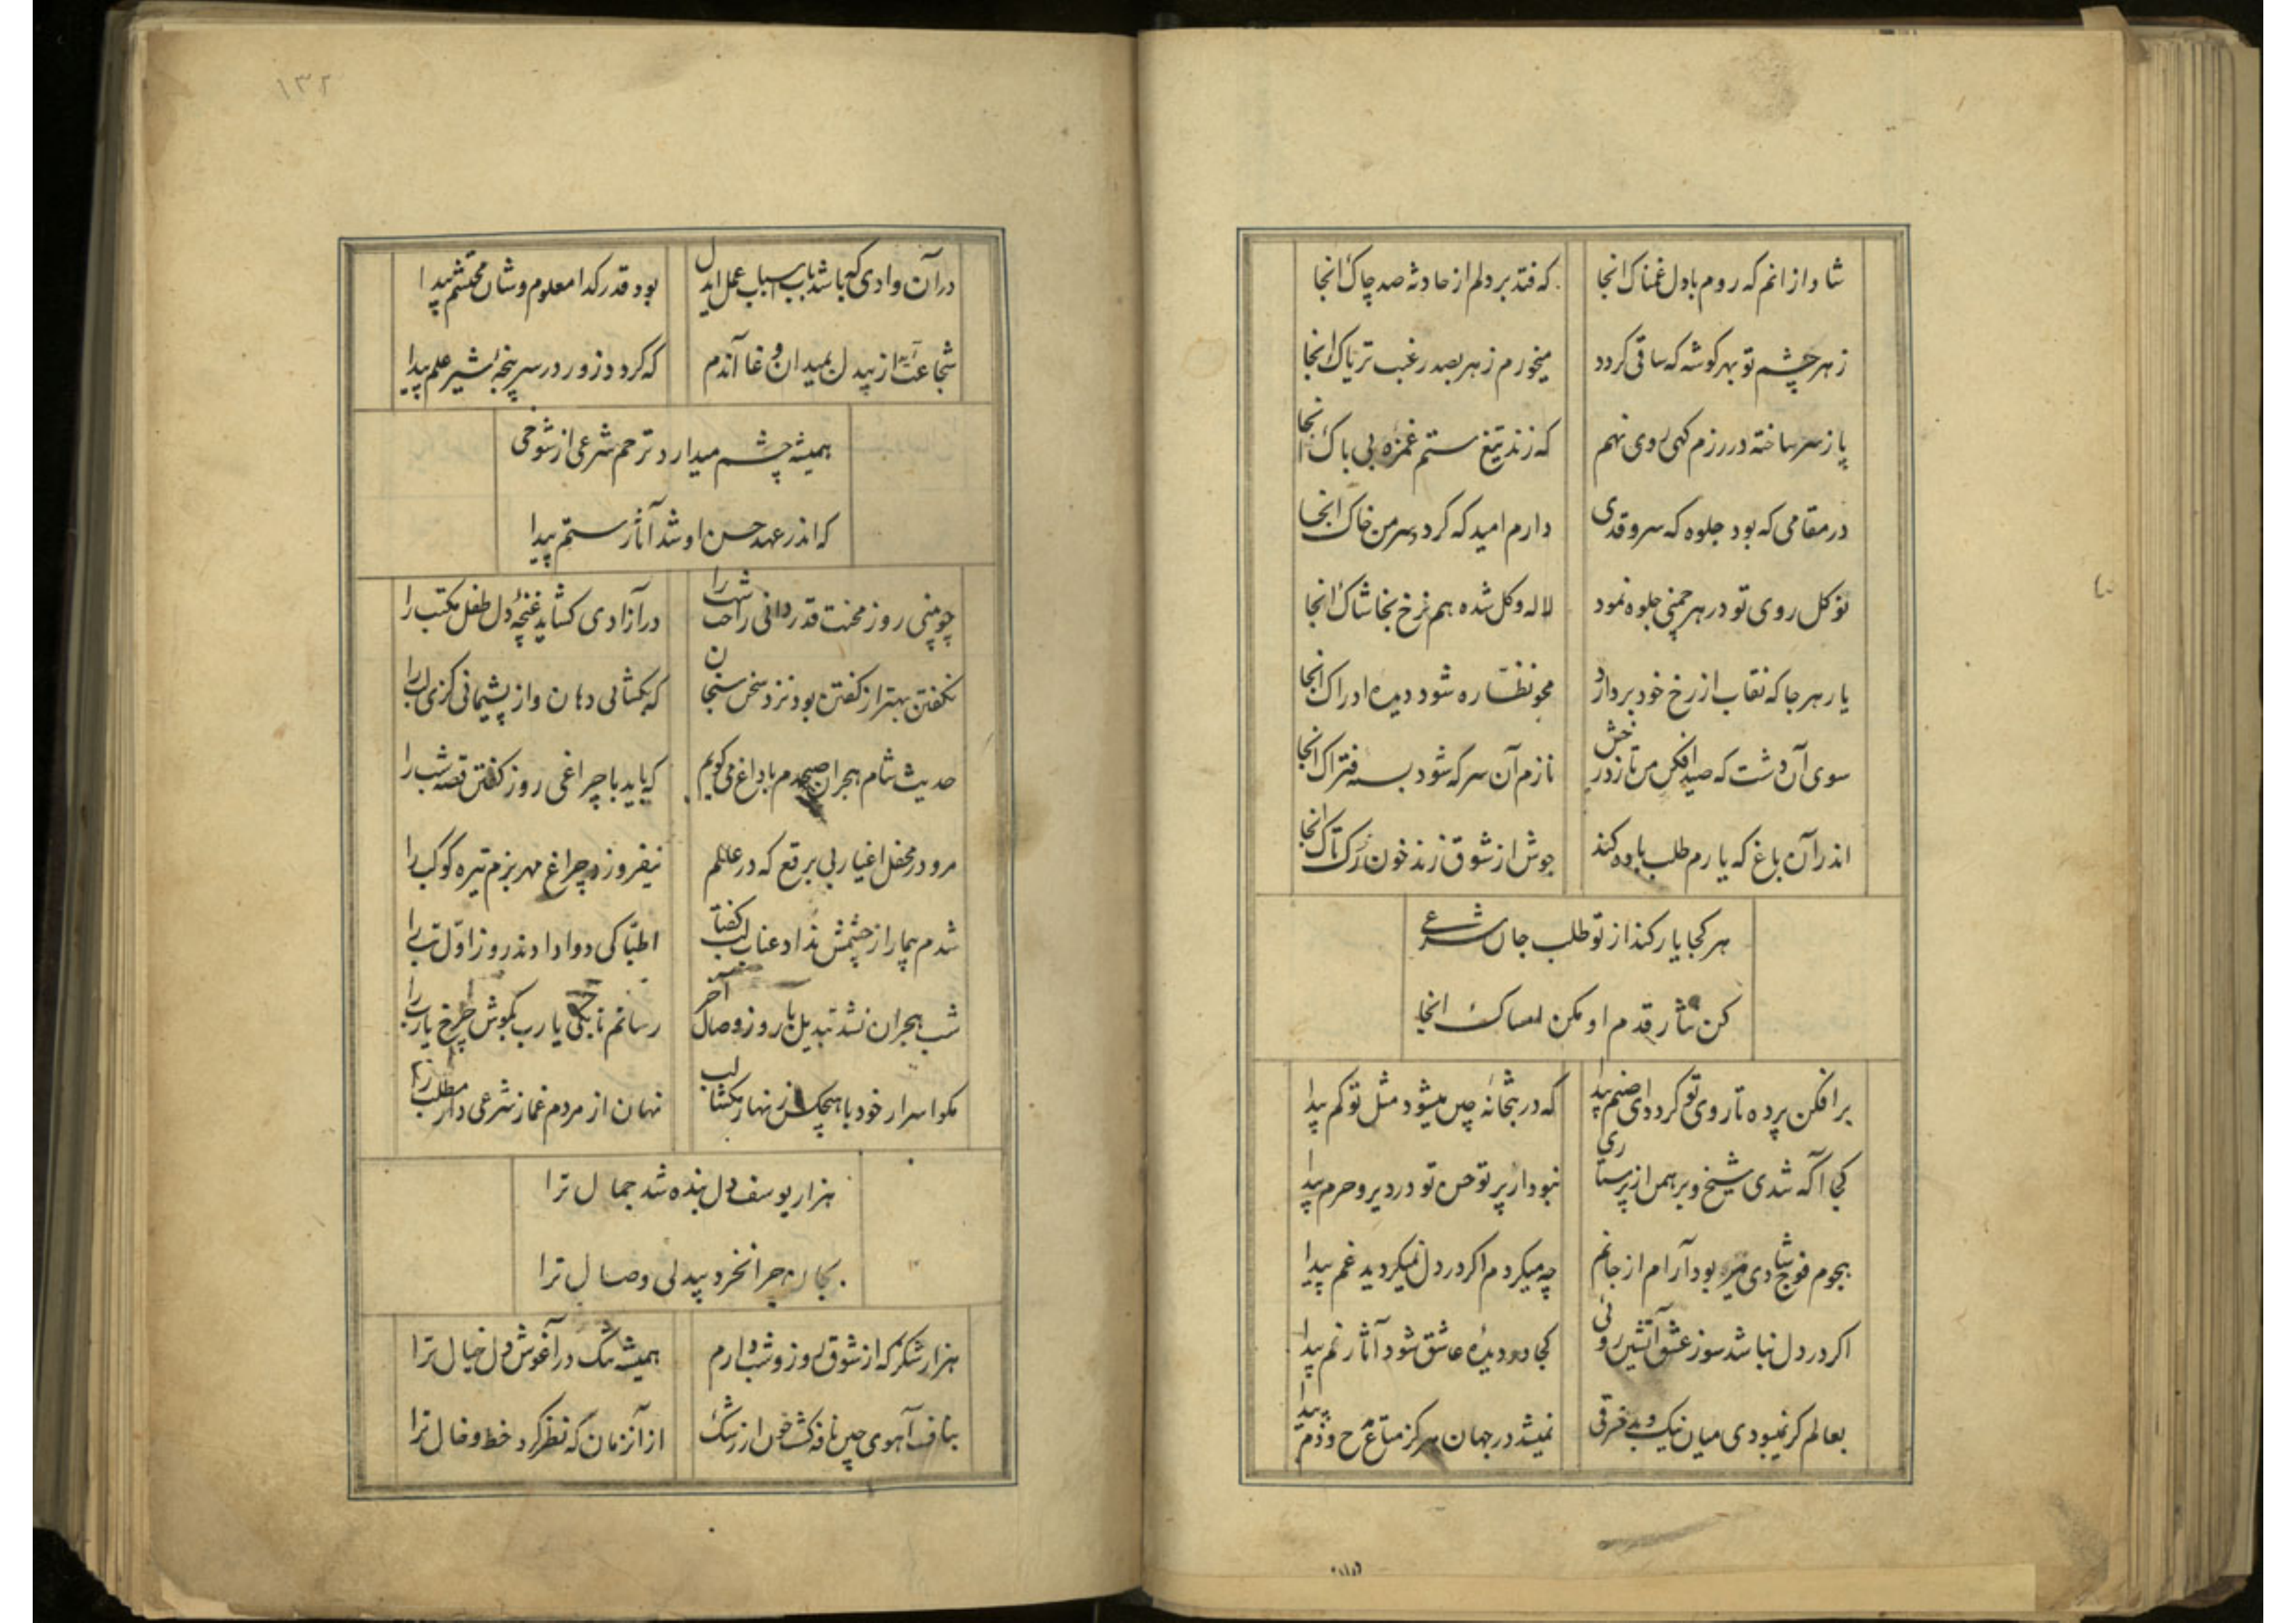 شاد از انم که روم با دل غمناک انجا
که فتد بر دلم از حادثه صد چاک انجا
زهر چشم تو بهر کوشه که ساقی کردد
میخورم زهر بصد رغبت تریاک انجا
پا ز سر ساخته در رزم کهی روی نهم
که زند تیغ ستم غمزه بی باک انجا
در مقامی که بود جلوه که سرو قدی
دارم امید که کردد سر من خاک انجا
نو کل روی تو در هر چمنی جلوه نمود
لاله و کل شده هم نرخ بخاشاک انجا
یار هر جا که نقاب از رخ خود بردارد
محو نظاره شود دیده ادراک انجا
سوی آن دشت که صید افکن من تازد رخش
نازم آن سر که شود بسته فتراک انجا
اندر آن باغ که یارم طلب باده کند
جوش از شوق زند خون رک تاک انجا
هر کجا یار کند از تو طلب جان شرعی
کن نثار قدم او مکن امساک انجا
بر افکن پرده تا روی تو کردد ای صنم پیدا
که در بتخانه چین میشود مثل تو کم پیدا
کجا آکه شدی شیخ و برهمن از پرستاری
نبود ار پرتو حسن تو در دیر و حرم پیدا
هجوم فوج شادی بود آرام از جانم
چه میکردم اکر در دل نمیکردید غم پیدا
اکر در دل نباشد سوز عشق آتشین روئی
کجا در دیده عاشق شود آثار نم پیدا
بعالم کر نمیبودی میان نیک و بد فرقی
نمیشد در جهان هرکز متاع مدح و ذم پیدا
۱۳۲
در آن وادی که باشد باب اسباب عمل ای دل
بود قدر کدا معلوم و شان محتشم پیدا
شجاعت از پیدل بمیدان وغا آندم
که کردد زور در سر پنجه شیر علم پیدا
همیشه چشم میدارد ترحم شرعی از شوخی
که اندر عهد حسن او شد آثار ستم پیدا
چو بینی روز محنت قدر دانی راحت شب را
در آزادی کشاید غنچه دل طفل مکتب را
نکفتن بهتر از کفتن بود نزد سخن سنجان
که بکشائی دهان و از پشیمانی کزی لب را
حدیث شام هجران صبحدم با داغ می کویم
که باید با چراغی روز کفتن قصه شب را
مرو در محفل اغیار بی برقع که در عالم
نیفروزد چراغ مهر بزم تیره کوکب را
شدم بیمار از چشمش نداد عناب لب کفتا
اطبا کی دوا دادند روز اول تب را
شب هجران نشد تبدیل با روز وصال آخر
رسانم تا بکی یارب بکوش چرخ یارب را
مکو اسرار خود با هیچکس زنهار مکشا لب
نهان از مردم غماز شرعی دار مطلب را
هزار یوسف دل بنده شد جمال ترا
بجان چرا نخرد بیدلی وصال ترا
هزار شکر که از شوق روز و شب دارم
همیشه تنک در آغوش دل خیال ترا
بناف آهوی چین نافه کشت خون از رشک
از آنزمان که نظر کرد خط و خال ترا